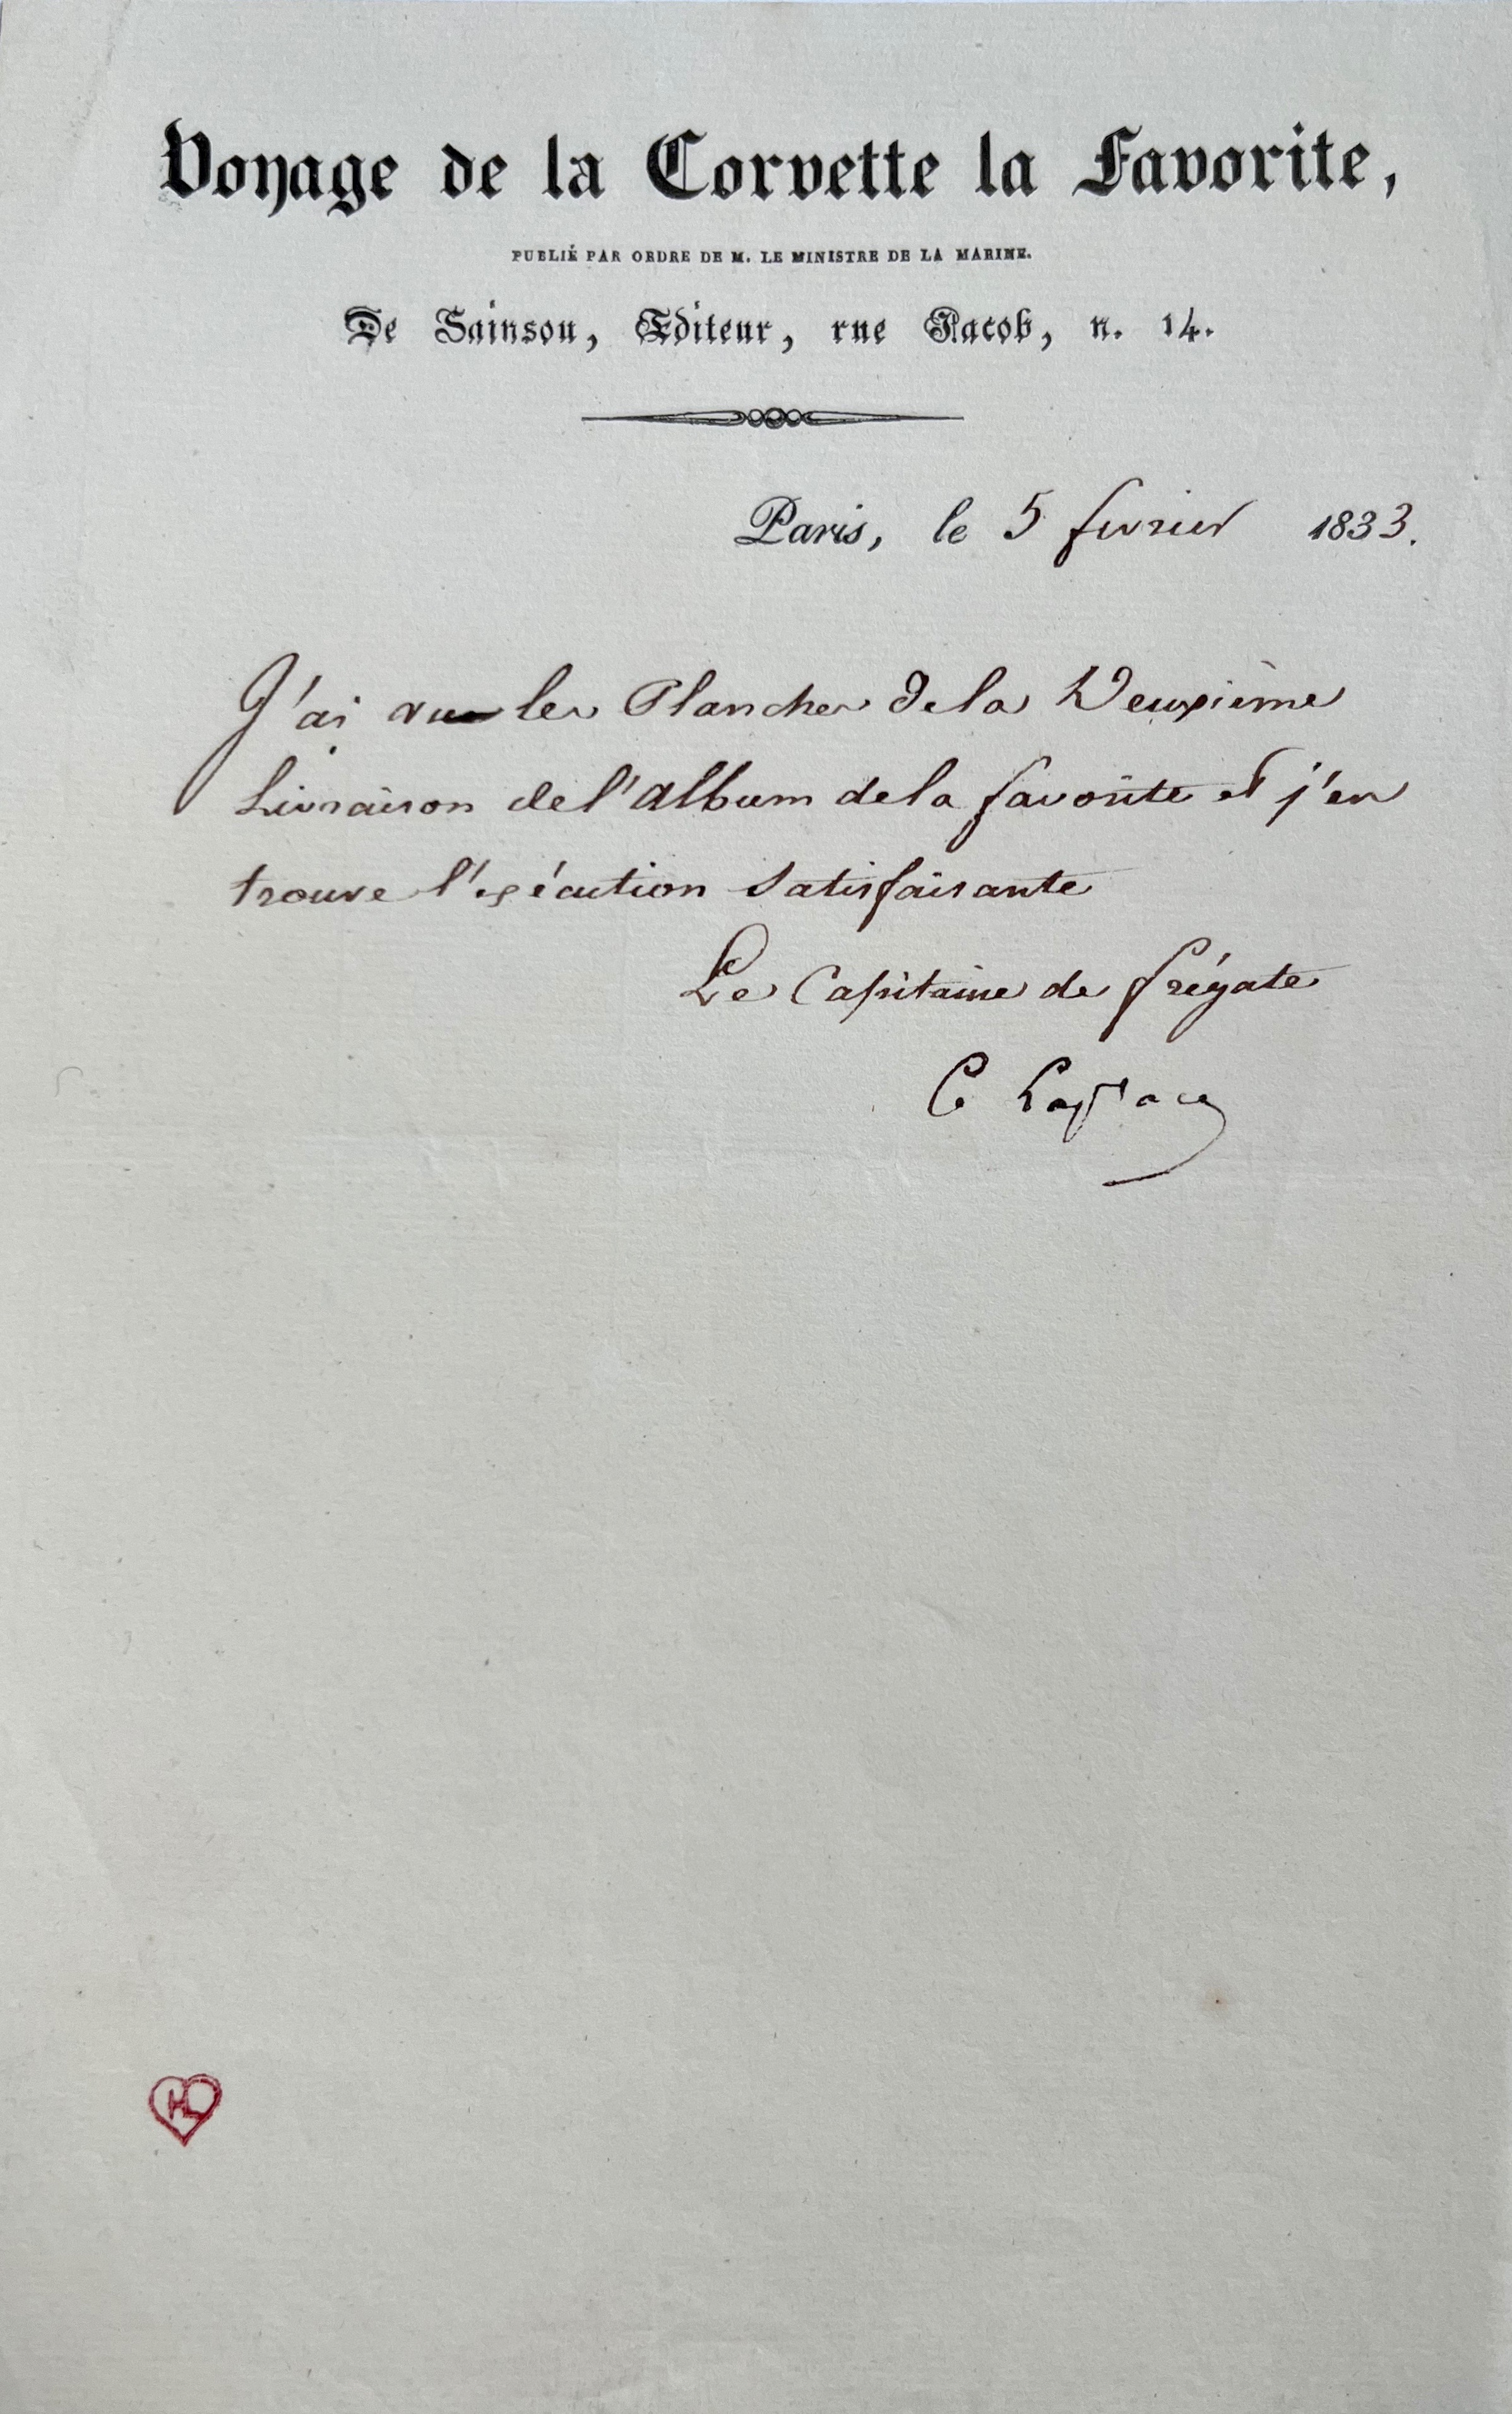 Voyage de la Corvette la Favorite,
PUBLIÉ PAR ORDRE DE M. LE MINISTRE DE LA MARINE.
De Sainson, Editeur, rue Jacob, n. 14.
Paris, le 5 fevrier 1833.
J'ai vu les Planches de la Deuxième
Livraison de l'album de la favorite et j'en
trouve l'exécution satisfaisante
Le Capitaine de frégate
C Laplace
HL